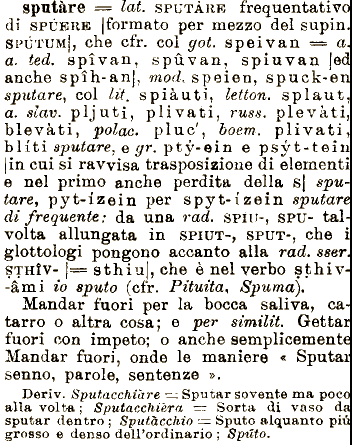 sputàre = lat. SPUTÀRE frequentativo
di SPÙERE [formato per mezzo del supin.
SPÙTUM], che cfr. col got. speivan = a.
a. ted. spîvan, spûvan, spiuvan [ed
anche spîh-an], mod. speien, spuck-en
sputare, col lit. spiàuti, letton. splaut,
a. slav. pljuti, plivati, russ. plevàti,
blevàti, polac. pluc', boem. plivati,
blíti sputare, e gr. ptý-ein e psýt-tein
[in cui si ravvisa trasposizione di elementi
e nel primo anche perdita della s] spu-
tare, pyt-ízein per spyt-ízein sputare
di frequente: da una rad. SPIU-, SPU- tal-
volta allungata in SPIUT-, SPUT-, che i
glottologi pongono accanto alla rad. sser.
ṢṬHÎV- [= sthiu], che è nel verbo ṣṭhiv-
-âmi io sputo (cfr. Pituita, Spuma).
Mandar fuori per la bocca saliva, ca-
tarro o altra cosa; e per similit. Gettar
fuori con impeto; o anche semplicemente
Mandar fuori, onde le maniere « Sputar
senno, parole, sentenze ».
Deriv. Sputacchiàre = Sputar sovente ma poco
alla volta; Sputacchièra = Sorta di vaso da
sputar dentro; Sputàcchio = Sputo alquanto più
grosso e denso dell'ordinario; Spúto.